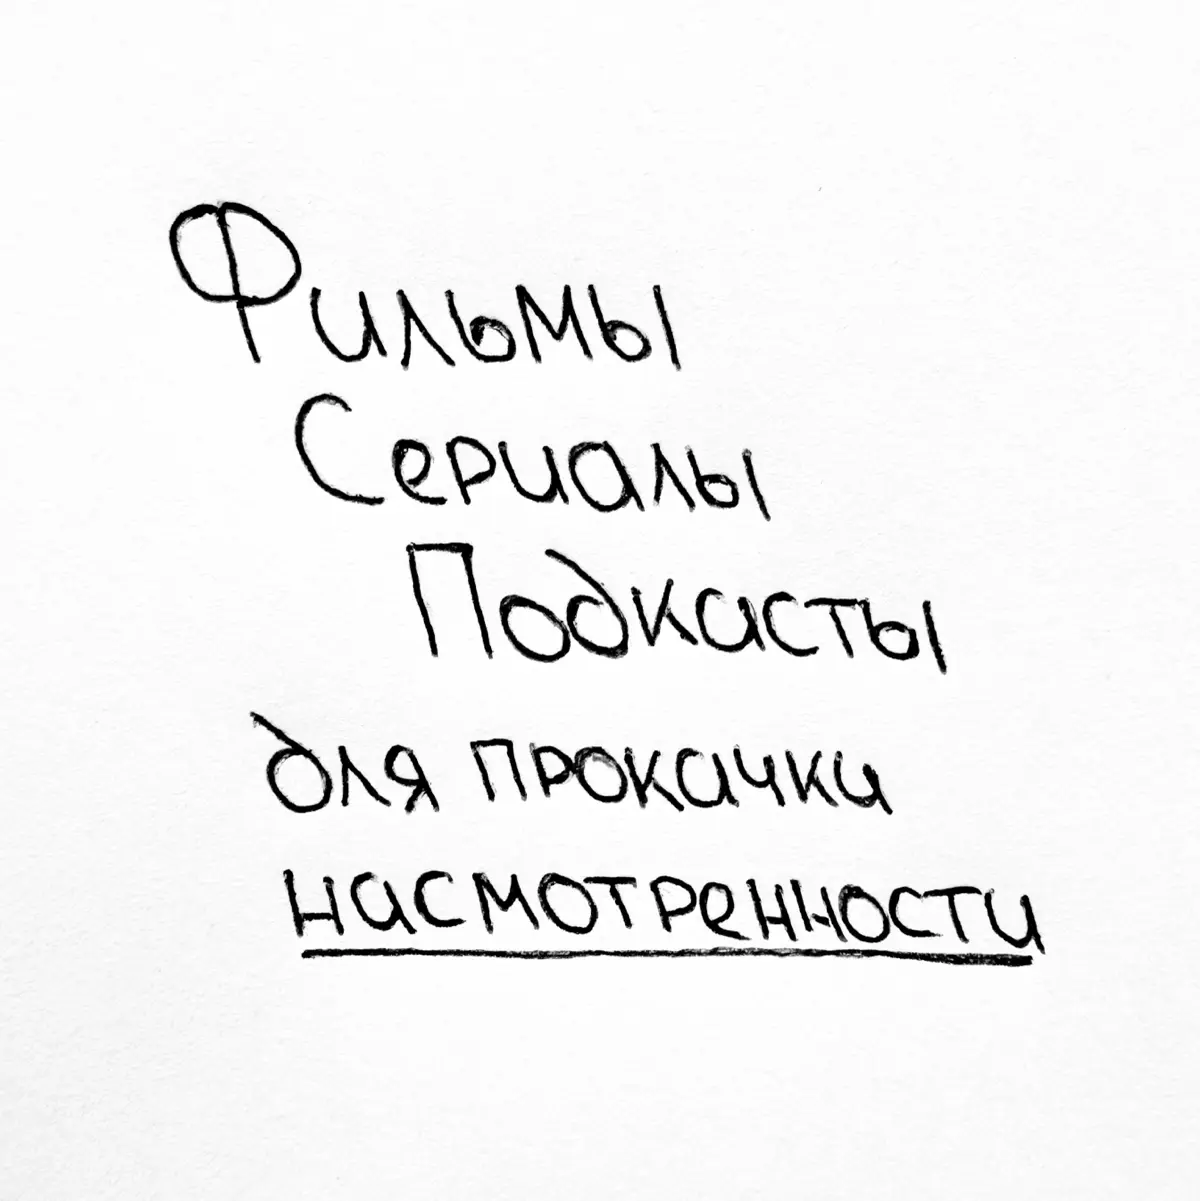 Фильмы
Сериалы
Подкасты
для прокачки
насмотренности